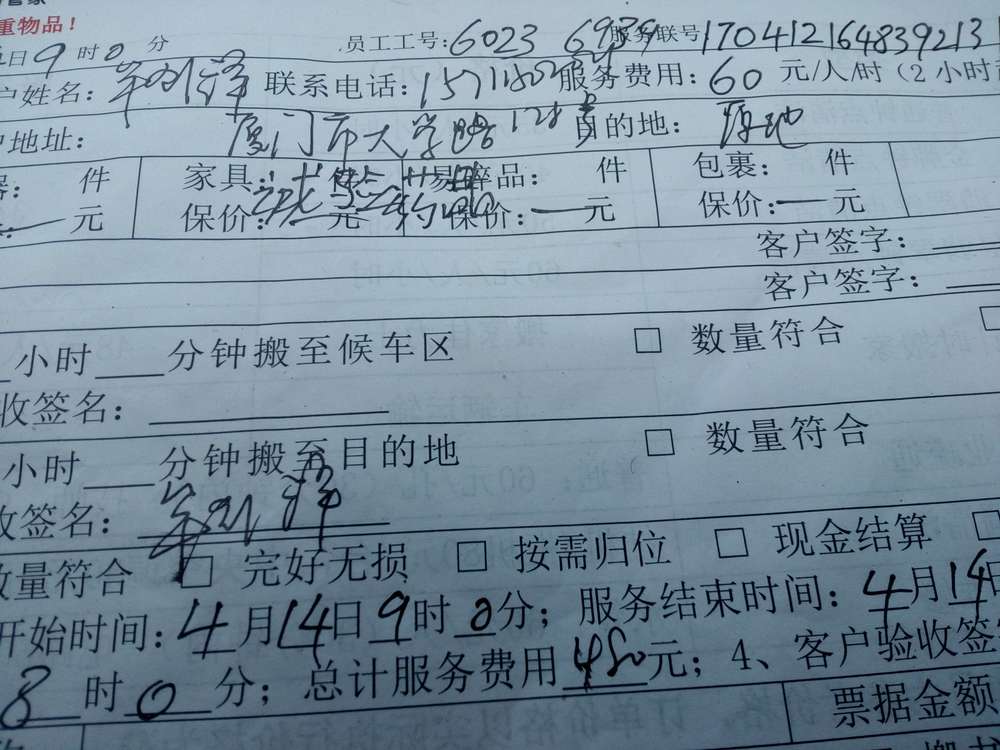 重物品！
日9时0分 员工工号：6023 6939 服务联号170412164839213
户姓名： 联系电话： 服务费用：60元/人/时（2小时
地址：厦门市大学路 目的地：原地
件 家具： 件 易碎品： 件 包裹： 件
元 保价： 元 保价：—元 保价：—元
客户签字：
客户签字：
小时 分钟搬至候车区 □ 数量符合
收签名：
小时 分钟搬至目的地 □ 数量符合
收签名：
数量符合 □ 完好无损 □ 按需归位 □ 现金结算
开始时间：4月14日9时0分；服务结束时间：4月14日
8时0分；总计服务费用480元；4、客户验收签
票据金额